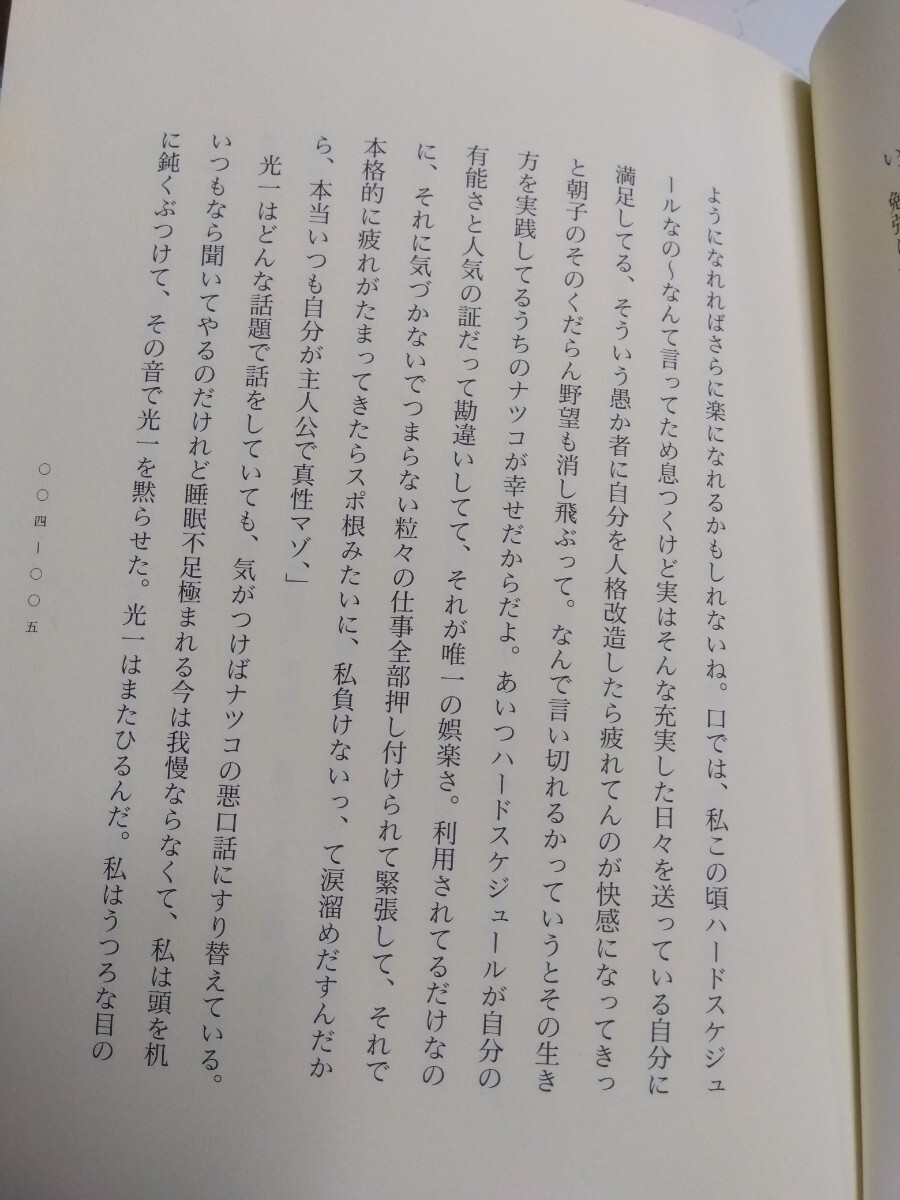 ようになれればさらに楽になれるかもしれないね。口では、私この頃ハードスケジュ
ールなの〜なんて言ってため息つくけど実はそんな充実した日々を送っている自分に
満足してる、そういう愚か者に自分を人格改造したら疲れてんのが快感になってきっ
と朝子のそのくだらん野望も消し飛ぶって。なんで言い切れるかっていうとその生き
方を実践してるうちのナツコが幸せだからだよ。あいつハードスケジュールが自分の
有能さと人気の証だって勘違いしてて、それが唯一の娯楽さ。利用されてるだけなの
に、それに気づかないでつまらない粒々の仕事全部押し付けられて緊張して、それで
本格的に疲れがたまってきたらスポ根みたいに、私負けないっ、て涙溜めだすんだか
ら、本当いつも自分が主人公で真性マゾ、」
光一はどんな話題で話をしていても、気がつけばナツコの悪口話にすり替えている。
いつもなら聞いてやるのだけれど睡眠不足極まれる今は我慢ならなくて、私は頭を机
に鈍くぶつけて、その音で光一を黙らせた。光一はまたひるんだ。私はうつろな目の
〇〇四ー〇〇五